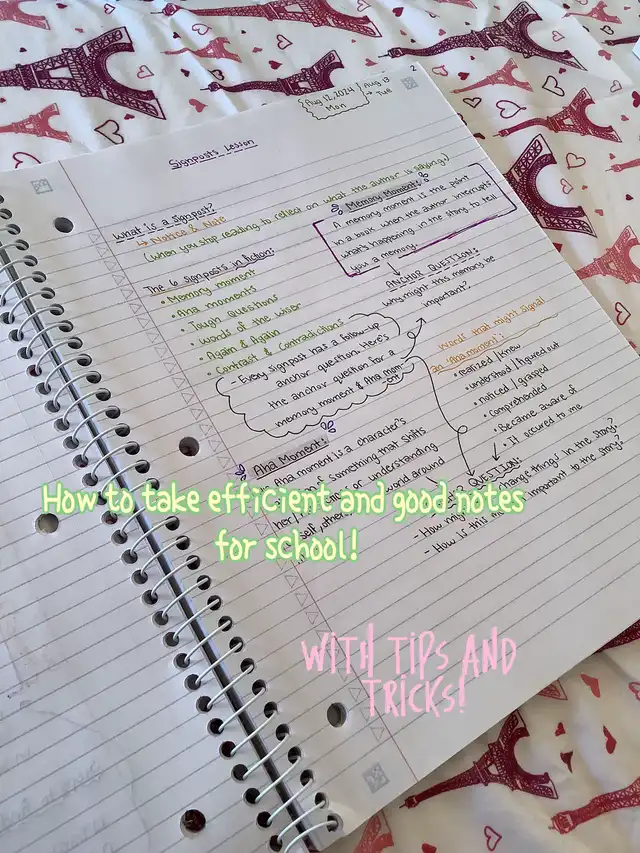 2
Aug 12, 2024
Mon
Aug 13
→ Tue
Signposts Lesson
What is a Signpost?
↳ Notice & Note
(when you stop reading to reflect on what the author is saying.)
The 6 signposts in fiction:
• Memory moment
• Aha moments
• Tough Questions
• Words of the wiser
• Again & Again
• Contrast & Contradictions
- Every signpost has a follow-up
anchor question. Here's
the anchor question for a
memory moment & Aha Mom-
ent
Aha Moment:
Aha moment is a character's
of something that shifts
or understanding
self, other world around
Memory Moment:
A memory moment is the point
in a book when the author interrupts
what's happening in the story to tell
you a memory.
ANCHOR QUESTION:
why might this memory be
important?
Words that might signal
an 'aha moment':
• realized/knew
• understood/figured out
• noticed/grasped
• Comprehended
• Became aware of
• It occured to me
QUESTION:
- How might change things in the story?
- How is this important to the story?
How to take efficient and good notes
for school!
WITH TIPS AND
TRICKS!